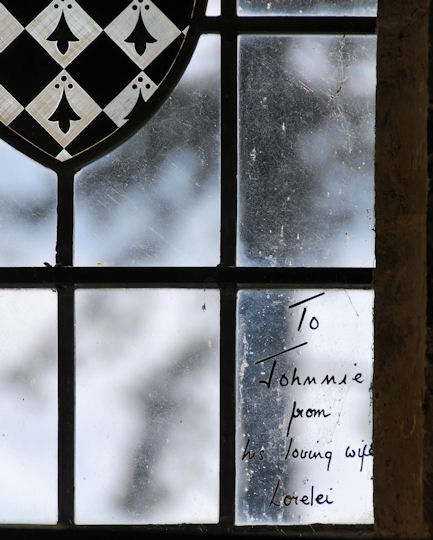 To
Johnnie
from
his loving wife
Lorelei